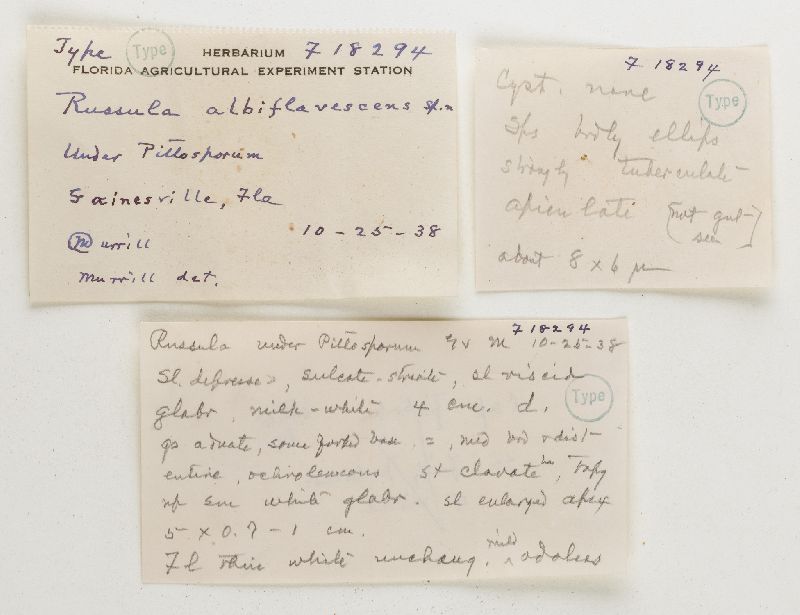 Type Type HERBARIUM F 18294
FLORIDA AGRICULTURAL EXPERIMENT STATION
Russula albiflavescens sp. n
Under Pittosporum
Gainesville, Fla
10-25-38
Murrill
Murrill det.
F 18294
Type
Cyst. none
Sps brdly ellips
strongly tuberculate
apiculate (not gut-
seen)
about 8 x 6 µ
F 18294
Russula under Pittosporum M 10-25-38
Sl. depressed, sulcate-striate, sl viscid
Type
glabr, milk-white 4 cm. d.
adnate, some forked base =, med brd & dist
entire, ochroleucous st clavate
sm white glabr. sl enlarged apex
5 x 0.7-1 cm.
Fl thin white unchang, mild odorless